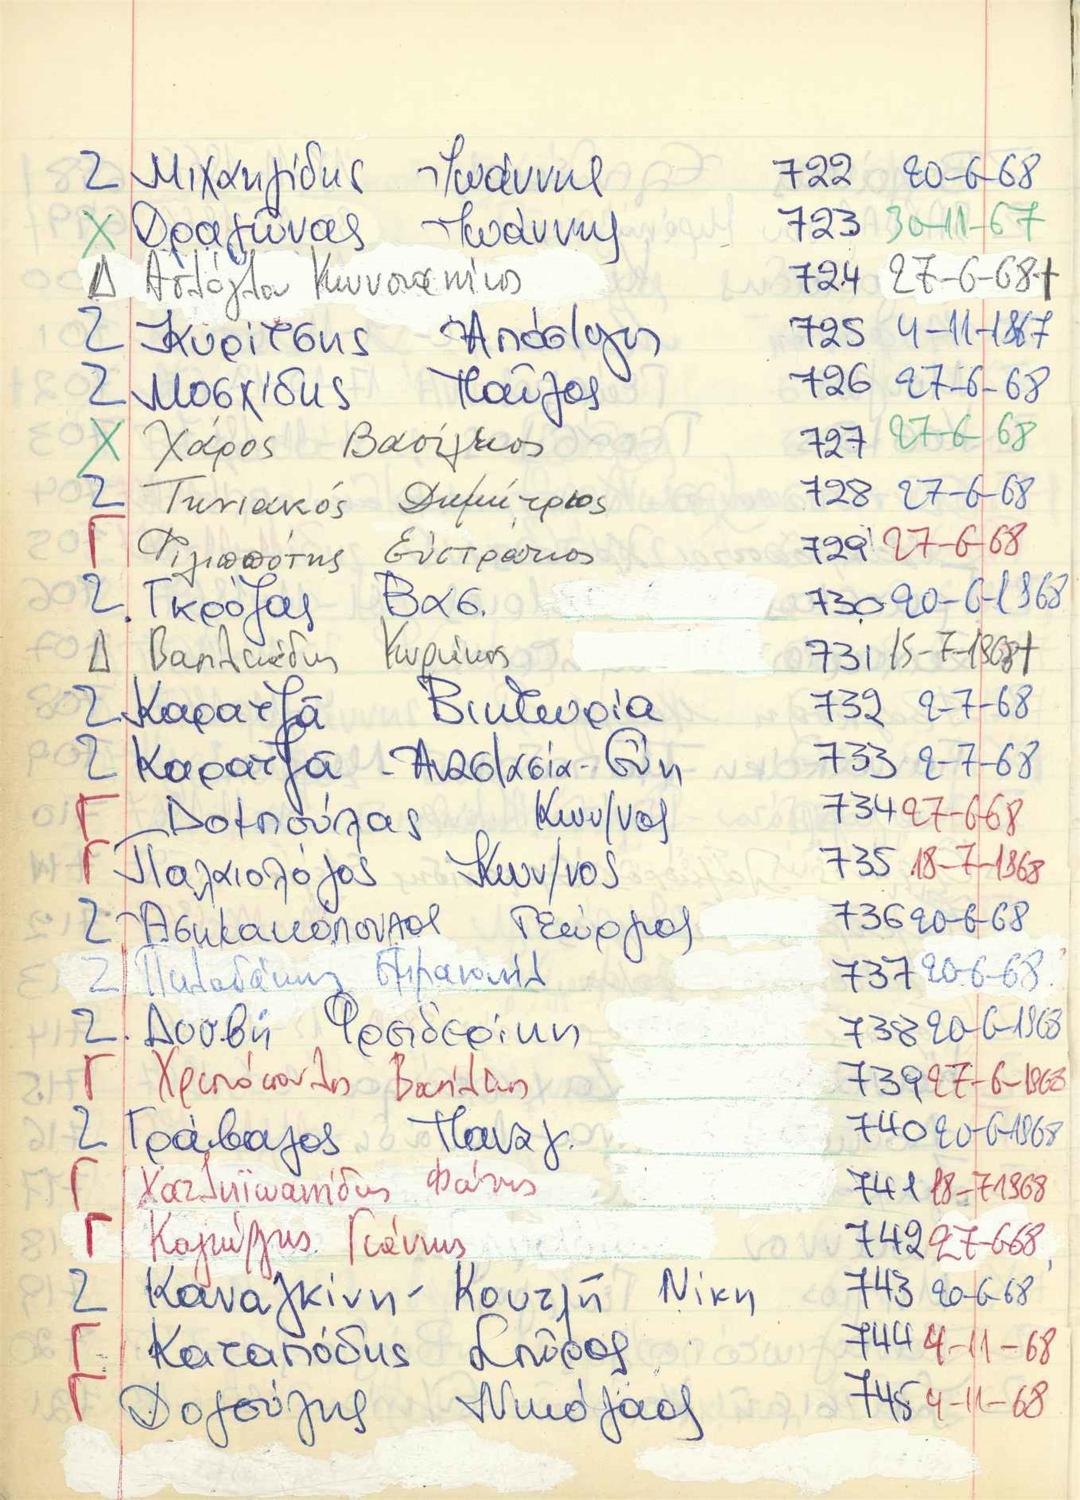 Ζ Μιχαηλίδης Ιωάννης 722 20-6-68
Χ Δραγώνας Ιωάννης 723 30-11-67
Δ Ασλάγλου Κωνσταντίνος 724 27-6-68+
Ζ Κυρίτσης Απόστολος 725 4-11-1967
Ζ Μοσχίδης Παύλος 726 27-6-68
Χ Χάρος Βασίλειος 727 27-6-68
Ζ Τηνιακός Δημήτριος 728 27-6-68
Γ Φιλιππότης Ευστράτιος 729 27-6-68
Ζ. Γκρόζας Βασ. 730 20-6-1968
Δ Βασιλειάδης Κυριάκος 731 15-7-1968+
Ζ Καρατζά Βικτωρία 732 2-7-68
Ζ Καρατζά - Αναστασία- 733 2-7-68
Γ Κων/νος 734 27-6-68
Γ Παλαιολόγος Κων/νος 735 18-7-1968
Ζ Γεώργιος 736 20-6-68
Ζ Εμμανουήλ 737 20-6-68
Ζ. Δουβή Φρειδερίκη 738 20-6-1968
Γ Βασίλειος 739 27-6-1968
Ζ Γράβαλος Παναγ. 740 20-6-1968
Γ Χατζηϊωαννίδης Φώτης 741 18-7-1968
Γ Καλιέργης Γιάννης 742 27-6-68
Ζ Καναγκίνη- Κουτλή Νίκη 743 20-6-68
Γ Καταπόδης Σπύρος 744 4-11-68
Γ Νικόλαος 745 4-11-68